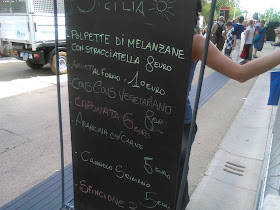 SICILIA
• POLPETTE DI MELANZANE
CON STRACCIATELLA 8 EURO
AL FORNO - 10 EURO
COUS COUS VEGETARIANO
8 EURO
CAPONATA 6 EURO
• ARANCINA C/CARNE
5 EURO
• CANNOLO SICILIANO
5 EURO
• SFINCIONE =